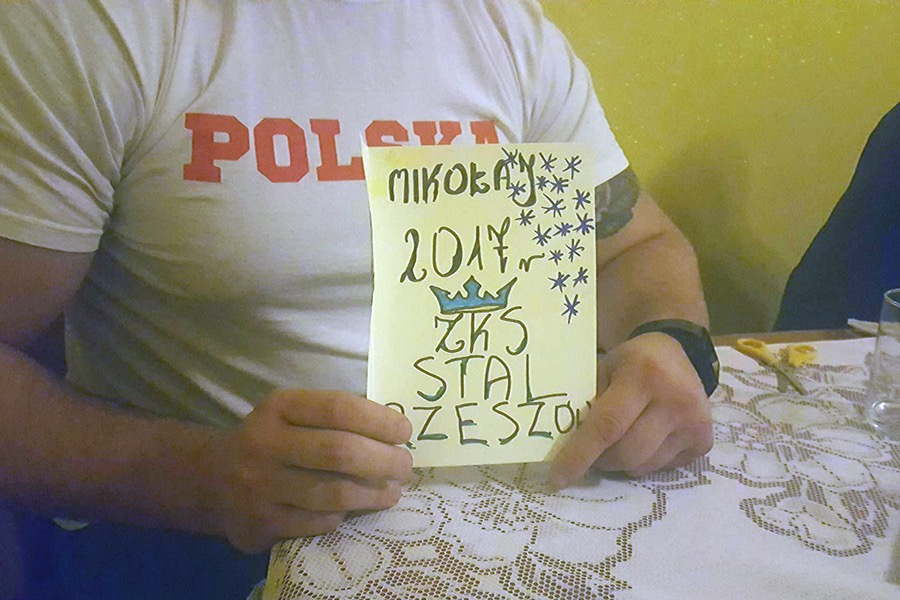 POLSKA
MIKOŁAJ
2017 r
ZKS
STAL
RZESZÓW